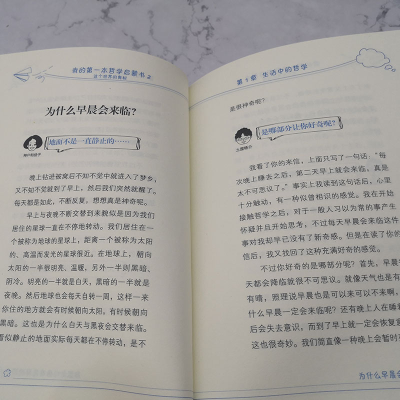 我的第一本哲学启蒙书
为什么早晨会来临?
地面不是一直静止的……
晚上钻进被窝后不知不觉中就进入了梦乡,
又不知不觉就到了早上,然后我们突然就醒了。
每天都是如此,不断反复。想想真是神奇呢。
早上与夜晚不断交替到来貌似是因为我们
居住的星球一直在不停地转动。我们居住在一
个被称为地球的星球上,距离一个被称为太阳
的、高温而发光的星球很近。在地球上,朝向
太阳的一半很明亮、温暖。另外一半则黑暗、
阴冷。明亮的一半就是白天,黑暗的一半就是
夜晚。然后地球也会每天自转一周,这样一来
你住的地方就会有时候朝向太阳,有时候朝向
黑暗。这也是为什么白天与黑夜会交替来临。
看似静止的地面实际每天都在不停转动,是不
第1章 生活中的哲学
是很神奇呢?
是哪部分让你好奇呢?
我看了你的来信,上面写了一句话:“每
次晚上睡去之后,第二天早上就会来临,真是
太不可思议了。”事实上我读到这句话后,心里
十分触动,有一种似曾相识的感觉。我在开始
接触哲学之后,对于一般人习以为常的事产生
怀疑并且开始思考,不过每天早晨会来临这件
事对我却早已没有了新奇感。但是在读了你的
信后,我又找回了这种充满好奇的感觉。
不过你好奇的是哪部分呢?首先,早晨
天都会降临就很不可思议。就像天气也是有
有晴,照理说早晨也是可以来可以不来啊。
什么早晨一定会来呢?还有晚上人在睡
后会失去意识,而到了早上就一定会恢复
这也很奇妙。我们简直像一种晚上会暂时
为什么早晨会